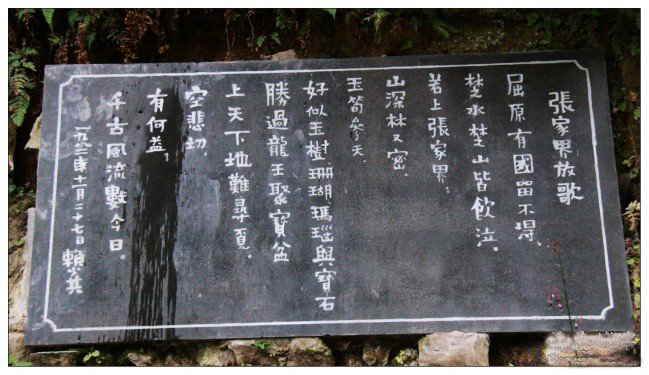 張家界放歌
屈原有國留不得、
楚水楚山皆飲泣。
若上張家界：
山深林又密．
玉筍參天．
好似玉樹珊瑚瑪瑙與寶石
勝過龍王聚寶盆
上天下地難尋覓。
空悲切．
有何益，
千古風流數今日。
十一月二十七日 賴少其